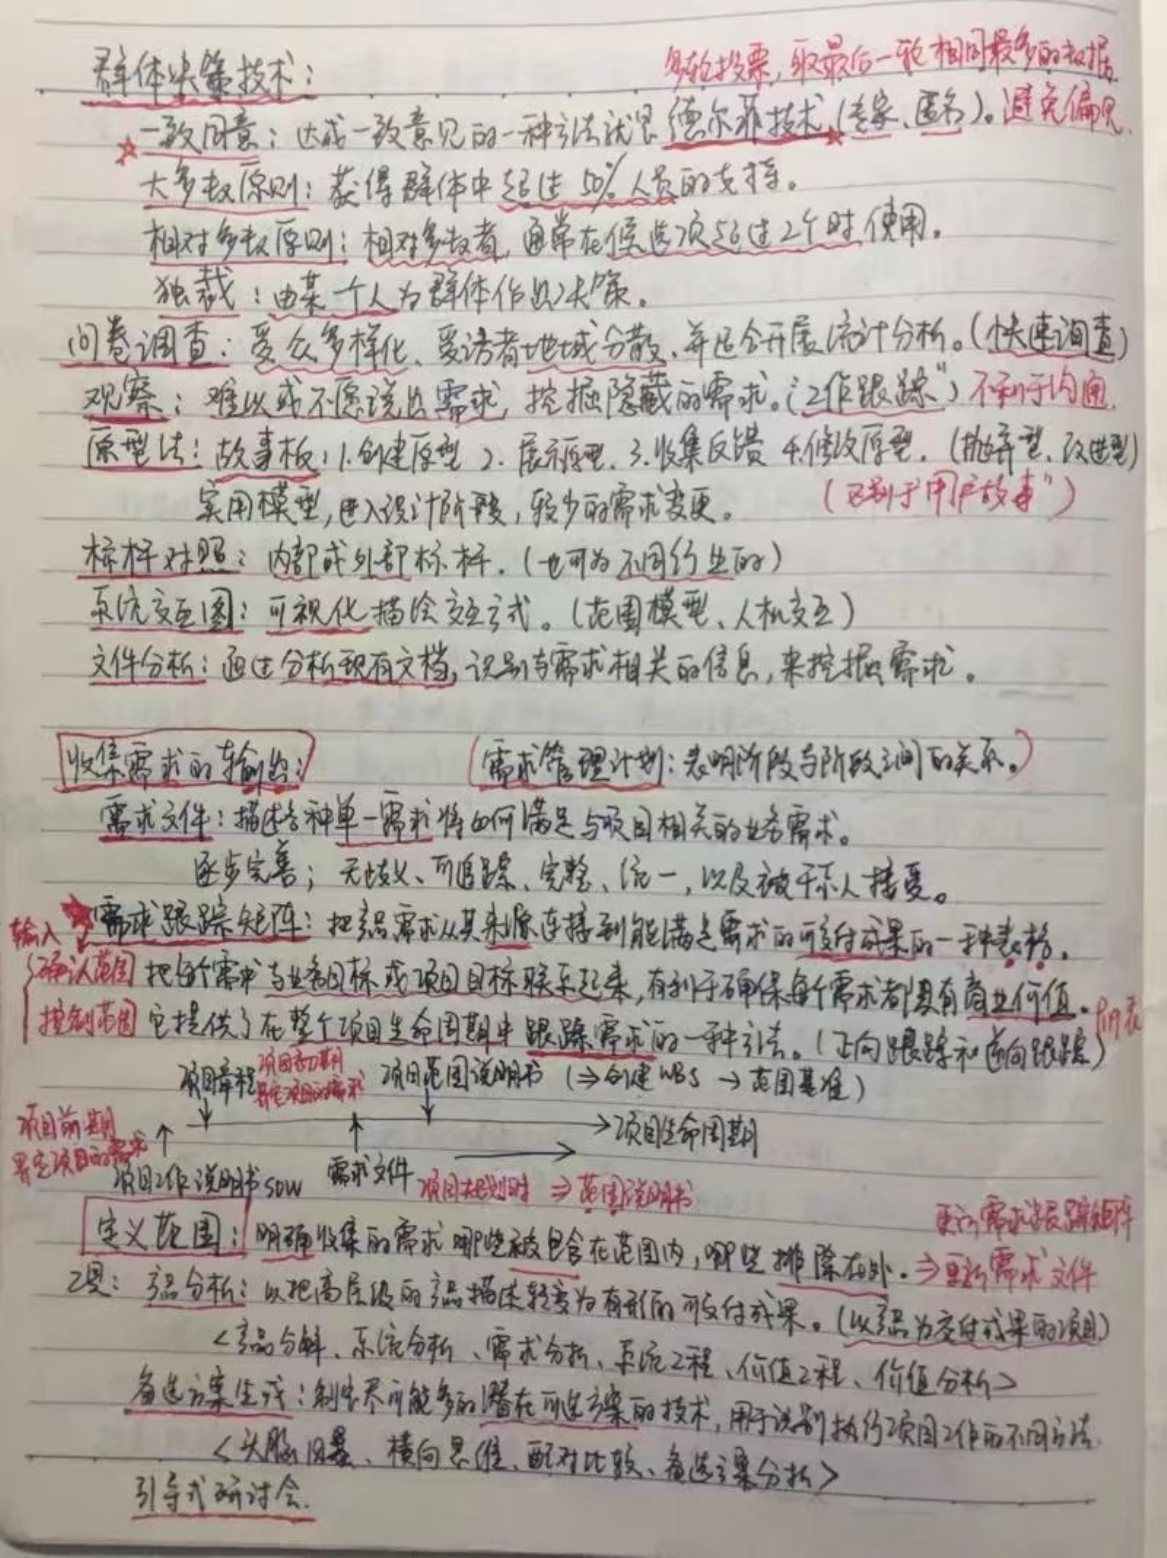 多轮投票，取最后一轮相同最多的数据
群体决策技术：
一致同意：达成一致意见的一种方法就是德尔菲技术（专家、匿名）。避免偏见
大多数原则：获得群体中超过50%人员的支持。
相对多数原则：相对多数者，通常在候选项超过2个时使用。
独裁：由某一个人为群体作出决策。
问卷调查：受众多样化、受访者地域分散、并适合开展统计分析。（快速调查）
观察：难以或不愿说出需求，挖掘隐藏的需求。（"工作跟踪"）不利于沟通
原型法：故事板：1.创建原型 2.展示原型 3.收集反馈 4.修改原型。（抛弃型、改进型）
实用模型，进入设计阶段，较少的需求变更。（区别于"用户故事"）
标杆对照：内部或外部标杆。（也可为不同行业的）
系统交互图：可视化描绘交互方式。（范围模型、人机交互）
文件分析：通过分析现有文档，识别与需求相关的信息，来挖掘需求。
收集需求的输出：（需求管理计划：表明阶段与阶段之间的关系。）
需求文件：描述各种单一需求将如何满足与项目相关的业务需求。
逐步完善；无歧义、可追踪、完整、统一，以及被干系人接受。
输入 需求跟踪矩阵：把产品需求从其来源连接到能满足需求的可交付成果的一种表格。
确认范围 把每个需求与业务目标或项目目标联系起来，有利于确保每个需求都具有商业价值。
控制范围 它提供了在整个项目生命周期中跟踪需求的一种方法。（正向跟踪和逆向跟踪）
项目章程 项目初期 项目范围说明书（⇒创建WBS → 范围基准）
界定项目的需求
项目前期 →项目生命周期
界定项目的需求
项目工作说明书SOW 需求文件 项目规划时 ⇒ 范围说明书
更新需求跟踪矩阵
定义范围：明确收集的需求哪些被包含在范围内，哪些排除在外。⇒更新需求文件
工具：产品分析：以把高层级的产品描述转变为有形的可交付成果。（以产品为交付成果的项目）
<产品分解、系统分析、需求分析、系统工程、价值工程、价值分析>
备选方案生成：制定尽可能多的潜在可选方案的技术，用于识别执行项目工作的不同方法
<头脑风暴、横向思维、配对比较、备选方案分析>
引导式研讨会.